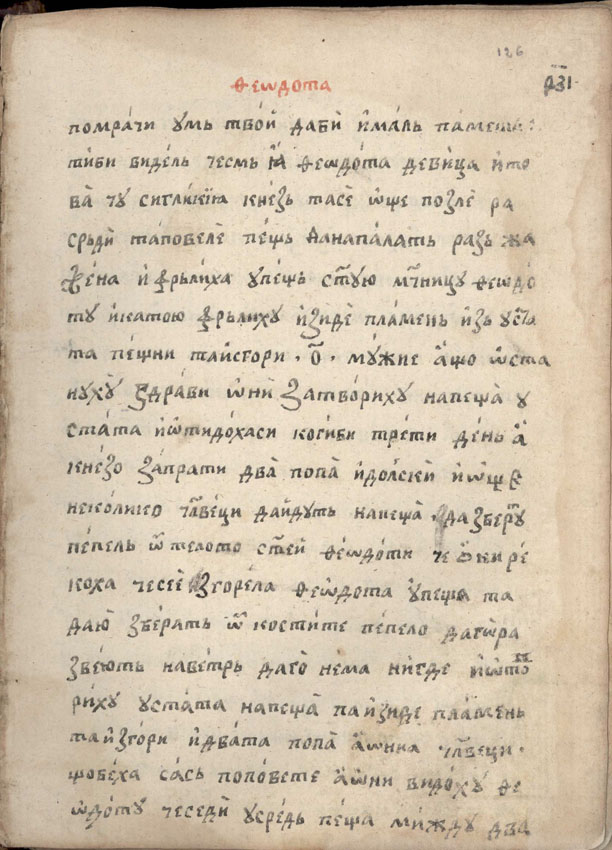 126
рз҃і
ѳеѡдота
помрачи умь твой даби ималь памеща
тиби видель чесмь и ѳеѡдота девица ито
ва ту сигликиꙗ кнезь тасе ѡще позле ра
срьди таповеле пещь данапалать разь жа
жена и фрьлиха упещь ст҃ую мч҃ницу ѳеѡдо
ту икатою фрьлиху изиде пламень изь уста
та пещни таисгори · о҃ · мужие ащо ѡста
нуху здрави ѡни затвориху напеща у
стата иѡтидохаси когиби трети день а
кнезо запрати два попа идолски иѡще
неколико чл҃веци даидуть напеща · да зберуть
пепель ѿ телото ст҃ей ѳеѡдоти че ѡни ре
коха чесее изгорела ѳеѡдота упеща та
даю зберать ѿ костите пепело дагѡра
звеють наветрь даго нема нигде иѡтво
риху устата напеща па изиде пламень
та изгори идвата попа аѡниа чл҃веци ·
щобеха сась поповете аѡни видоху ѳе
ѡдоту чеседи усредь пеща мижду два